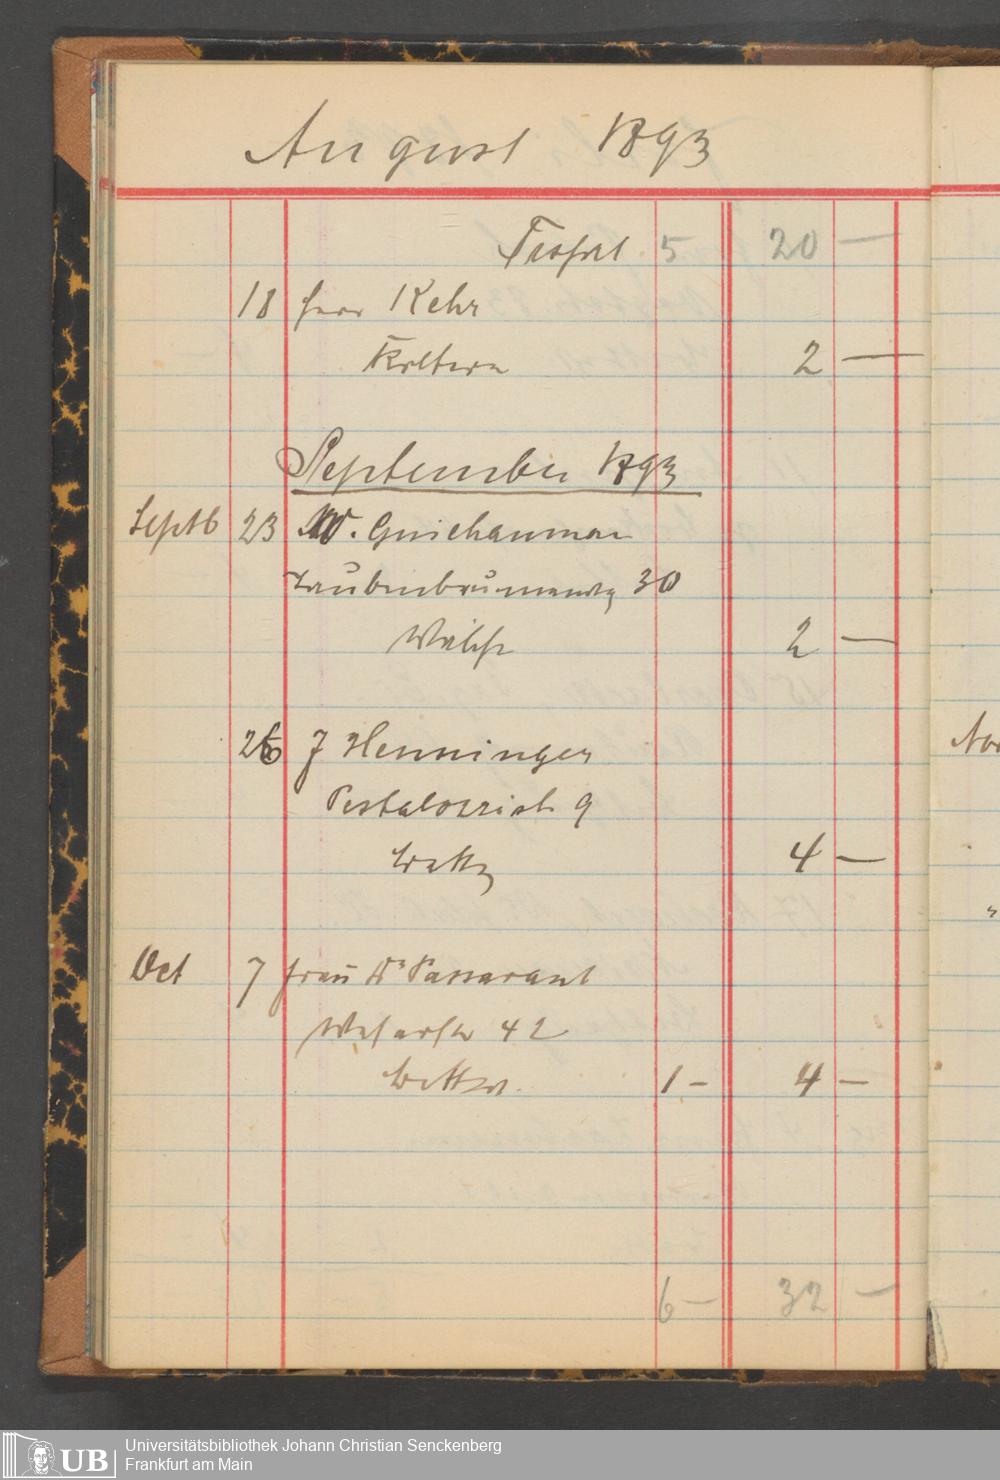 August 1893
Trasprt 5 20 —
18 Herr Kehr
2 —
September 1893
Septb 23 W. Guichamman
Taubenbrunnenweg 30
Wäsche 2 —
26 J Henninger
Pestalozzistr 9
4 —
Oct 7 Frau Dr Passavant
Weserstr 42
1 – 4 –
6 – 32 –
UB
Universitätsbibliothek Johann Christian Senckenberg
Frankfurt am Main